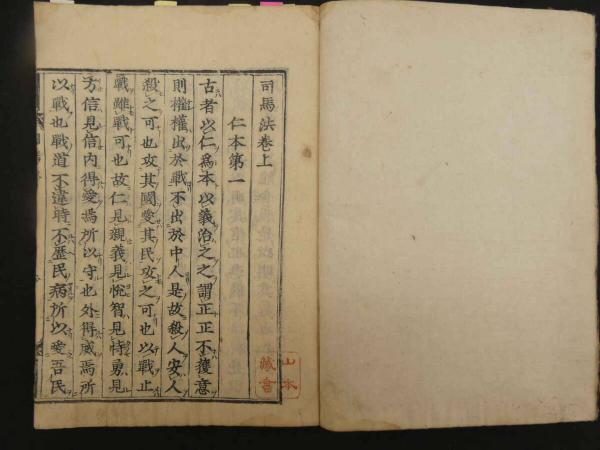 司馬法巻上
仁本第一
古者以仁爲本以義治之之謂正正不獲意
則權權出於戰不出於中人是故殺人安人
殺之可也攻其國愛其民攻之可也以戰止
戰雖戰可也故仁見親義見悅智見恃勇見
方信見信内得愛焉所以守也外得威焉所
以戰也戰道不違時不歷民病所以愛吾民
山本
藏書